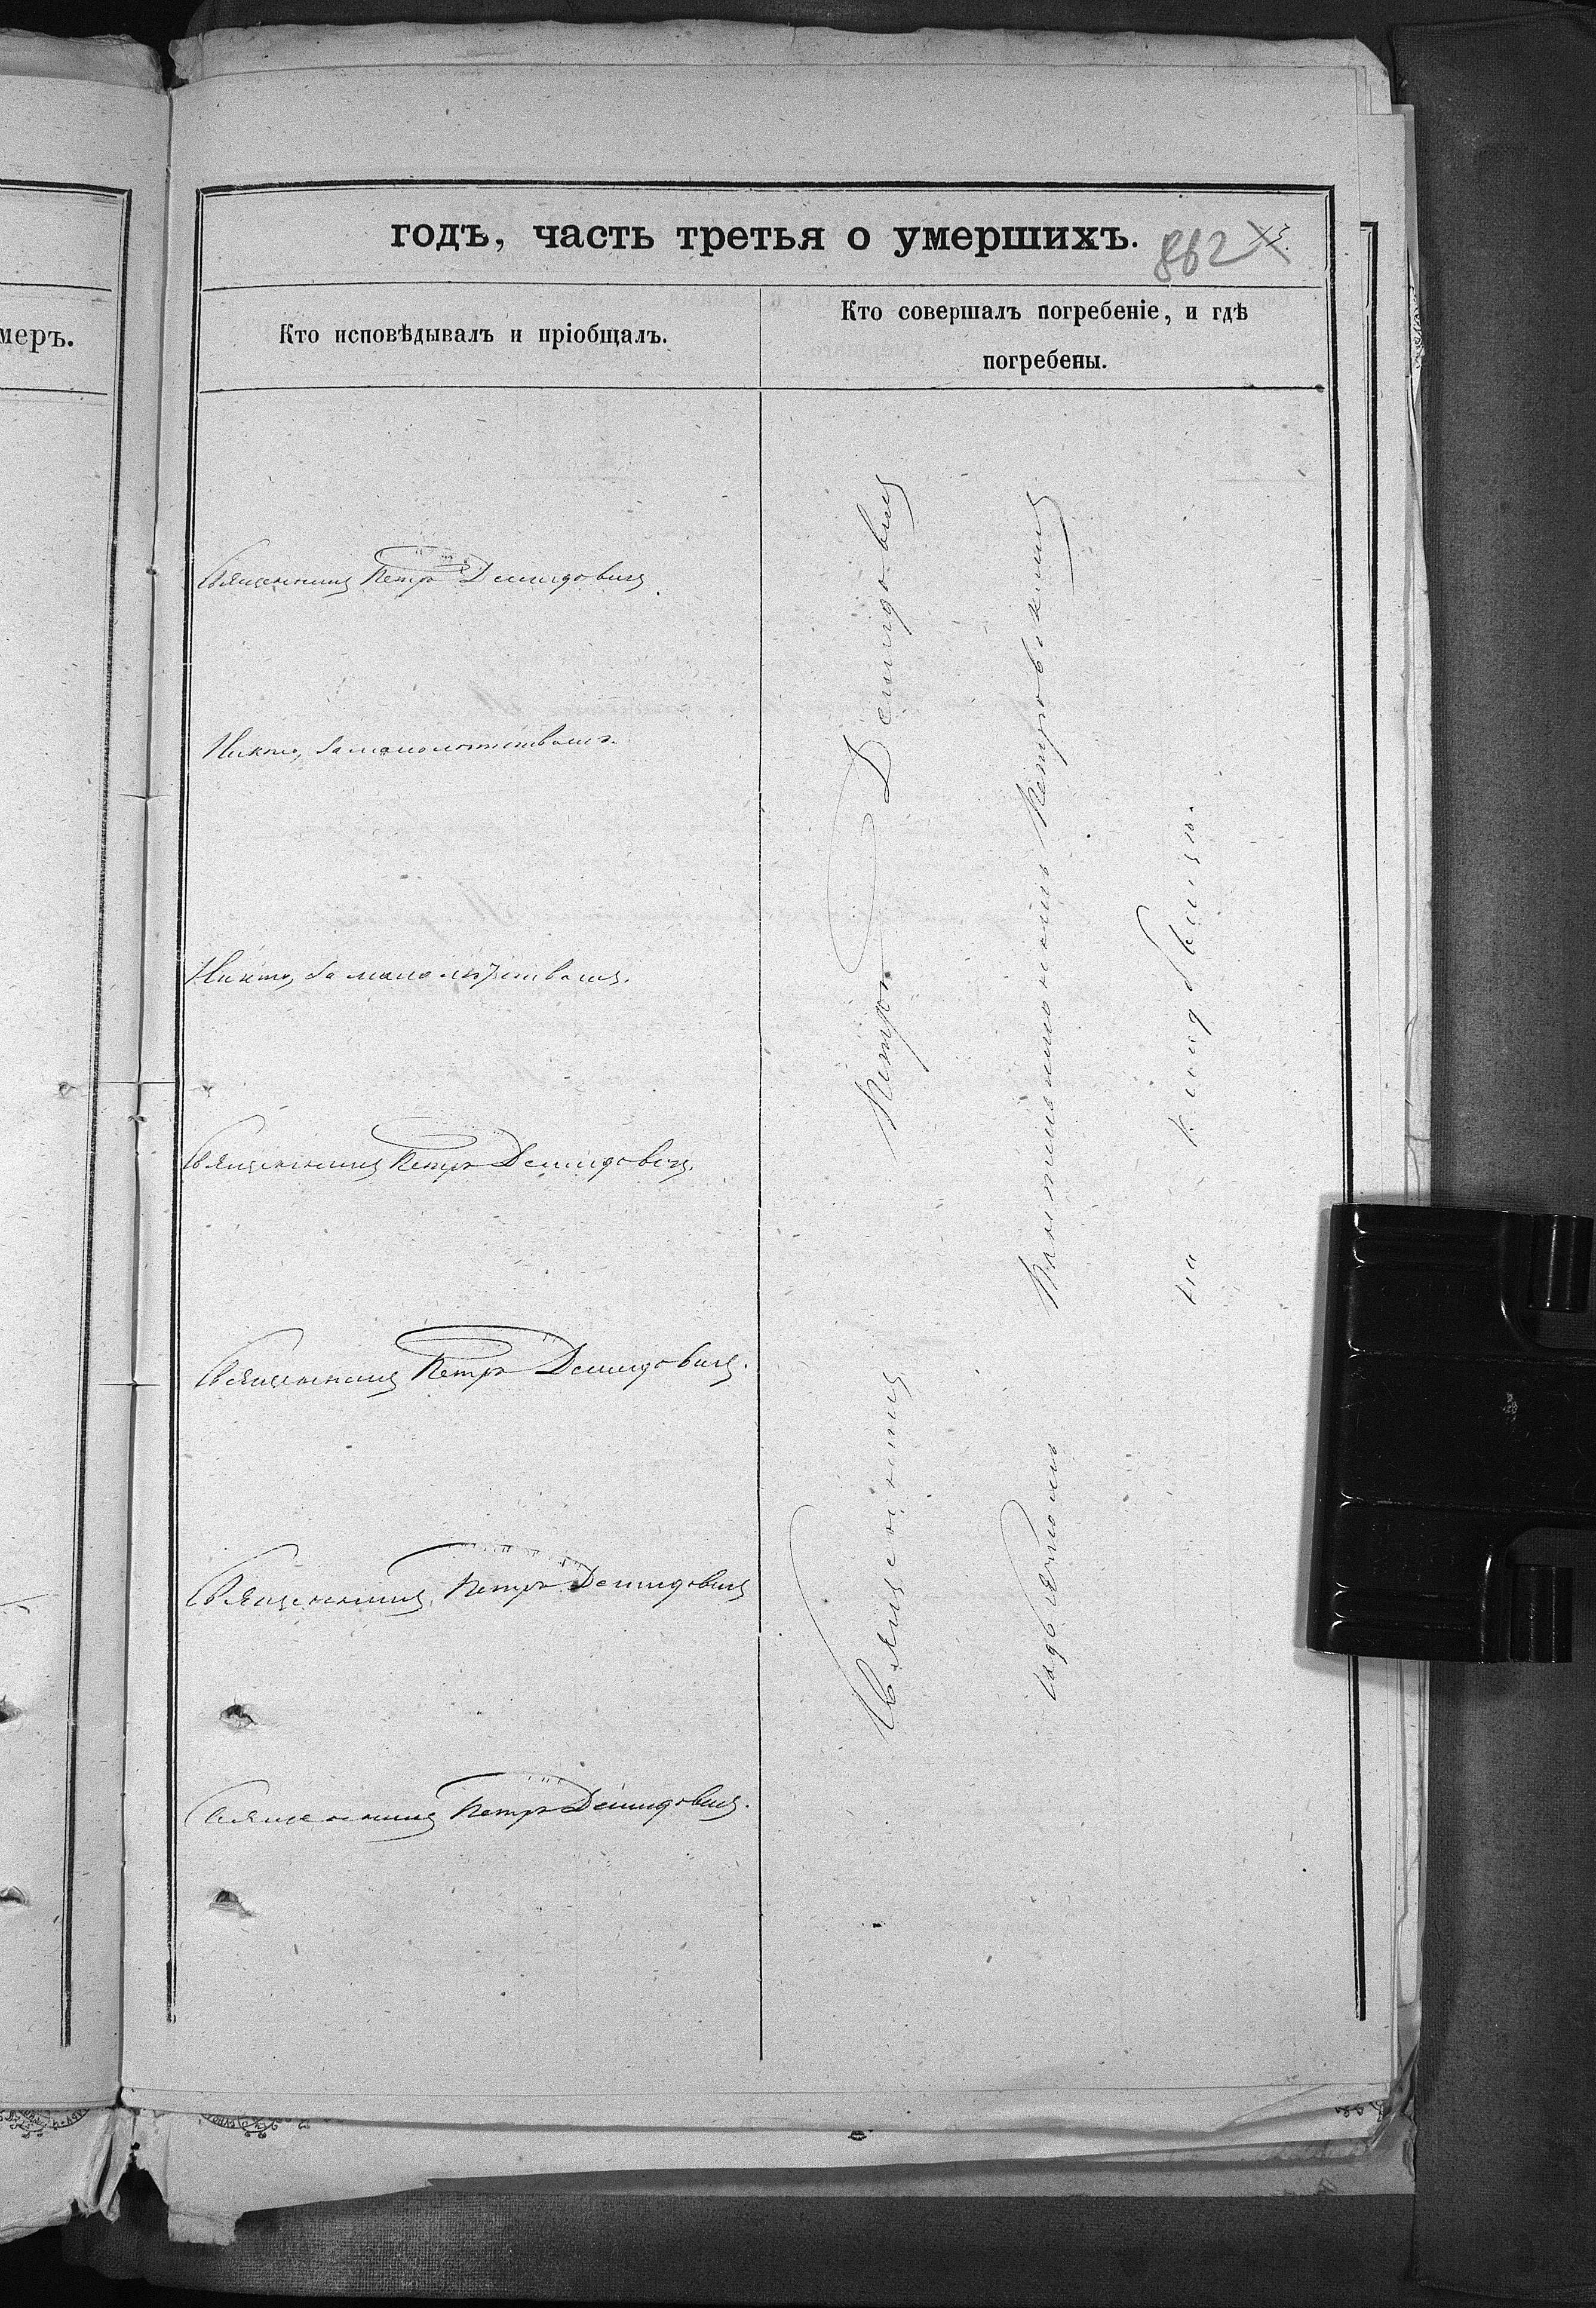 годъ, часть третья о умершихъ.
862
меръ.
Кто исповѣдывалъ и пріобщалъ.
Кто совершалъ погребеніе, и гдѣ
погребены.
Священникъ Петръ Демидовичъ
Никто, за малолѣтствомъ.
Никто, за малолѣтствомъ.
Священникъ Петръ Демидовичъ.
Священникъ Петръ Демидовичъ.
Священникъ Петръ Демидовичъ
Священникъ Петръ Демидовичъ.
Священникъ Петръ Демидовичъ
Петровскимъ
на кладбищѣ.